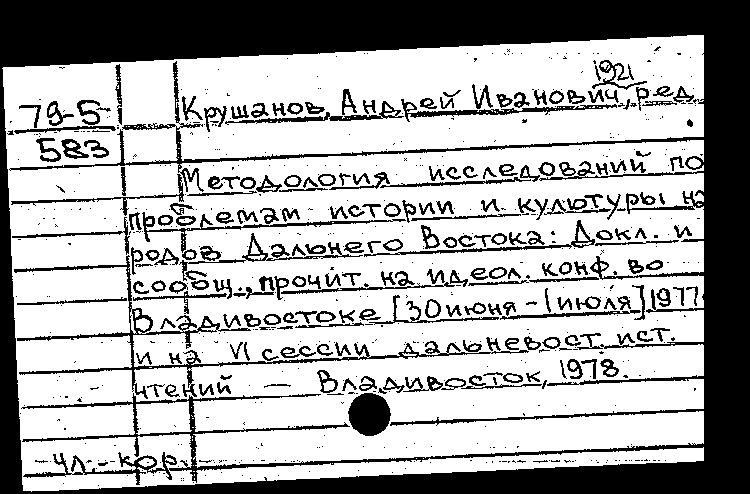 1921
79-5 Крушанов, Андрей Иванович, ред
583
Методология исследований по
проблемам истории и культуры на
родов Дальнего Востока: Докл. и
сообщ., прочит. на идеол. конф. во
Владивостоке [30 июня - 1 июля] 1977
и на VI сессии дальневост. ист.
чтений — Владивосток, 1978.
-чл.-кор.